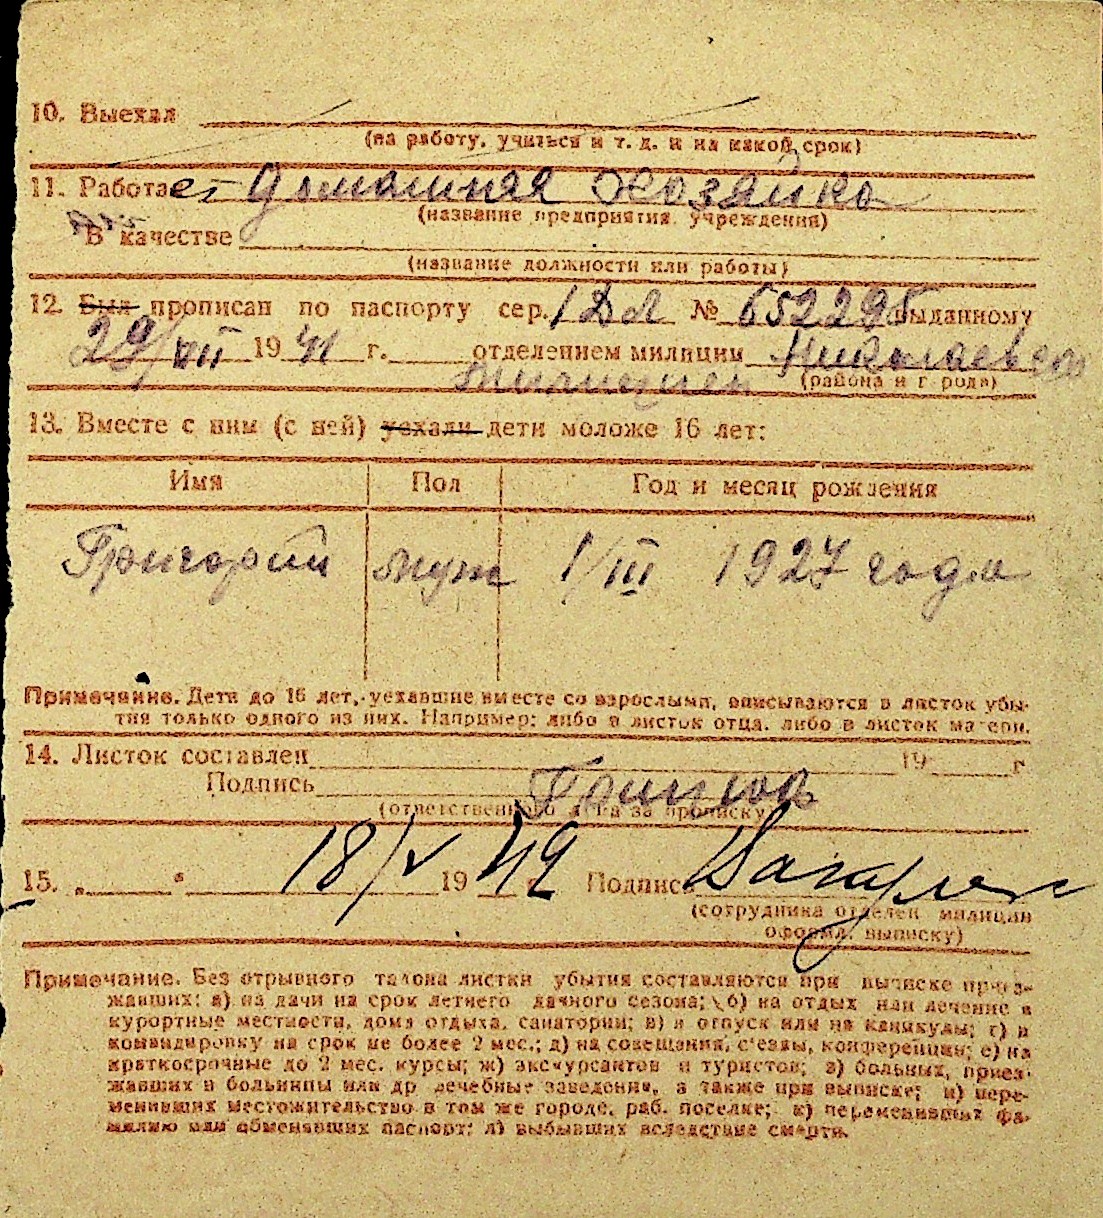 10. Выехал
(на работу, учиться и т. д. и на какой срок)
11. Работает Домашняя хозяйка
(название предприятия, учреждения)
В качестве
(название должности или работы)
12. Был прописан по паспорту сер. 1 ДЛ № 652295 выданному
29/VII 1941 г. отделением милиции
(района и города)
13. Вместе с ним (с ней) уехали дети моложе 16 лет:
Имя Пол Год и месяц рождения
Григорий муж 1/III 1927 года
Примечание. Дети до 16 лет, уехавшие вместе со взрослыми, вписываются в листок убы-
тия только одного из них. Например: либо в листок отца, либо в листок матери.
14. Листок составлен 19 г.
Подпись
(ответственного лица за прописку)
15. „ “ 18/V 1942 Подпись
(сотрудника отделен. милиции
оформл. выписку)
Примечание. Без отрывного талона листки убытия составляются при выписке приез-
жавших: а) на дачи на срок летнего дачного сезона; б) на отдых или лечение в
курортные местности, дома отдыха, санатории; в) в отпуск или на каникулы; г) в
командировку на срок не более 2 мес.; д) на совещания, с'езды, конференции; е) на
краткосрочные до 2 мес. курсы; ж) экскурсантов и туристов; з) больных, приез-
жавших в больницы или др. лечебные заведения, а также при выписке; и) пере-
менивших местожительство в том же городе, раб. поселке; к) переменивших фа-
милию или обменявших паспорт; л) выбывших вследствие смерти.